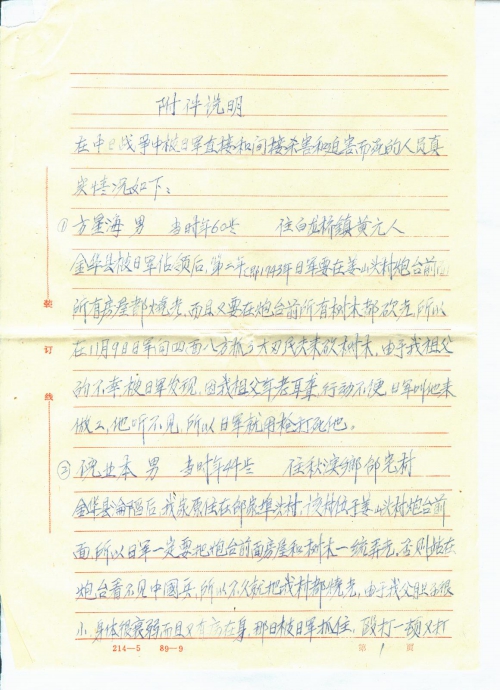 附件说明
在中日战争中被日军直接和间接杀害和迫害而死的人员真
实情况如下:
① 方星海 男 当时年60岁 住白龙桥鎮黄元人
金华县被日军佔领后,第二年(即1943年日军要在姜山头村炮台前面
所有房屋都燒光,而且又要在炮台前所有树木都砍光,所以
在11月9日日军向四面八方抓了大刀民夫来砍树木,由于我祖父
的不幸被日军发现,因我祖父年老耳聋,行动不便,日军叫他来
做工,他听不见,所以日军就用枪打死他。
② 倪业本 男 当时年44岁 住秋滨鄉
金华县淪陷后,我家原住在邵家埠头村,该村位于姜山头村炮台前
面,所以日军一定要把炮台前面房屋和树木一统弄光,否则站在
炮台看不见中國兵,所以不久就把我村都燒光,由于我父胆子很
小,身体很衰弱而且又有病在身,那日被日军抓住,毆打一顿又打
装
订
线
214—5 89—9
第 1 頁